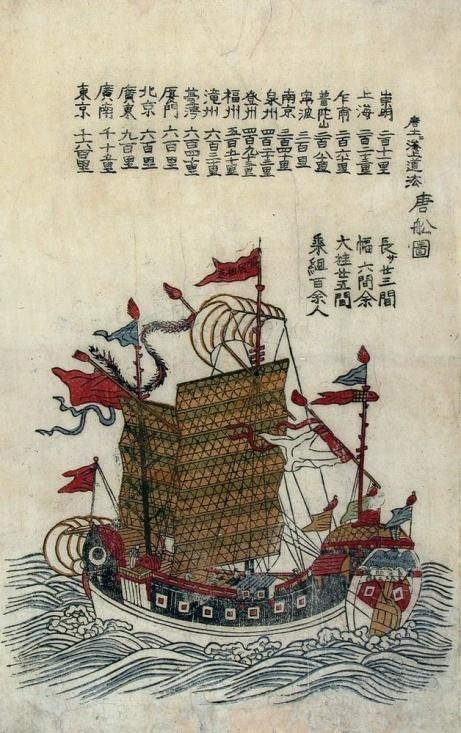 唐舩圖
道法
長サ廿三間
幅六間余
大柱廿五間
乗組百余人
崇明 二百十里
上海 二百里
乍甫 二百六里
普陀山 二百里
寧波 三百里
南京 三百四十里
泉州 四百里
登州 四百里
福州 五百五十里
漳州 六百三十里
臺湾 六百四十里
厦門 六百里
北京 六百里
廣東 九百里
廣南 千十五里
東京 千六百里